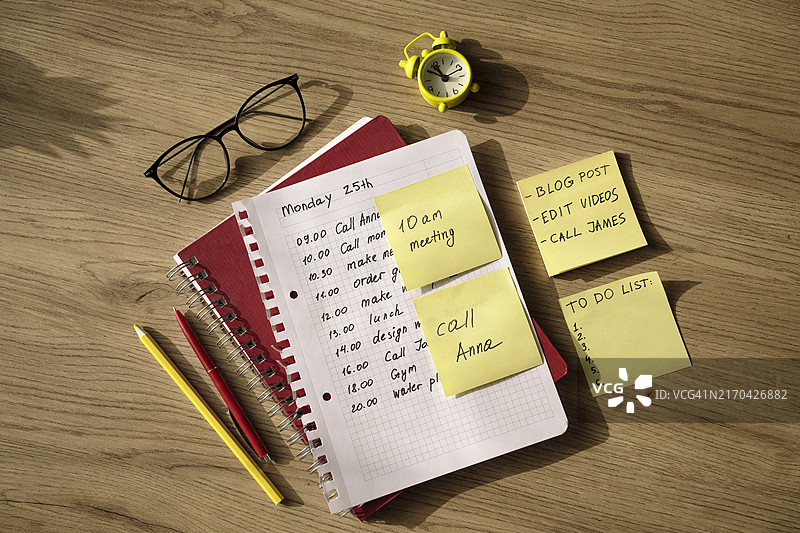 Monday 25th
09.00 Call Anna
10.00 Call mom
10.30 make
11.00 order
12.00 make
13.00 lunch
14.00 design
16.00 Call
18.00 Gym
20.00 water
10 am
meeting
call
Anna
- BLOG POST
- EDIT VIDEOS
- CALL JAMES
TO DO LIST:
1.
2.
3.
4.
5.
VCG
ID: VCG41N2170426882